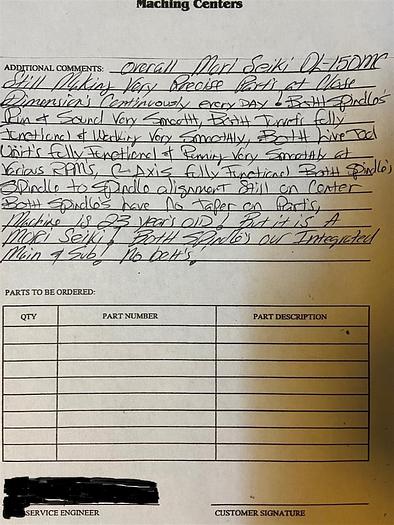 Maching Centers
ADDITIONAL COMMENTS: Overall Mori Seiki DL-150MC
Still Making Very Precise Parts at Close
Dimension's Continuously every DAY! Both Spindle's
Run & Sound Very Smooth, Both Turrets fully
functional & Working Very Smoothly, Both Live Tool
Unit's fully functional & Running Very Smoothly at
Various RPMs, C-Axis fully functional Both Spindle's,
Spindle to Spindle alignment Still on Center
Both Spindle's have No Taper on Part's,
Machine is 23 year's old! But it is A
Mori Seiki! Both Spindle's our Integrated
Main & Sub! No belt's.
PARTS TO BE ORDERED:
QTY PART NUMBER PART DESCRIPTION
SERVICE ENGINEER CUSTOMER SIGNATURE